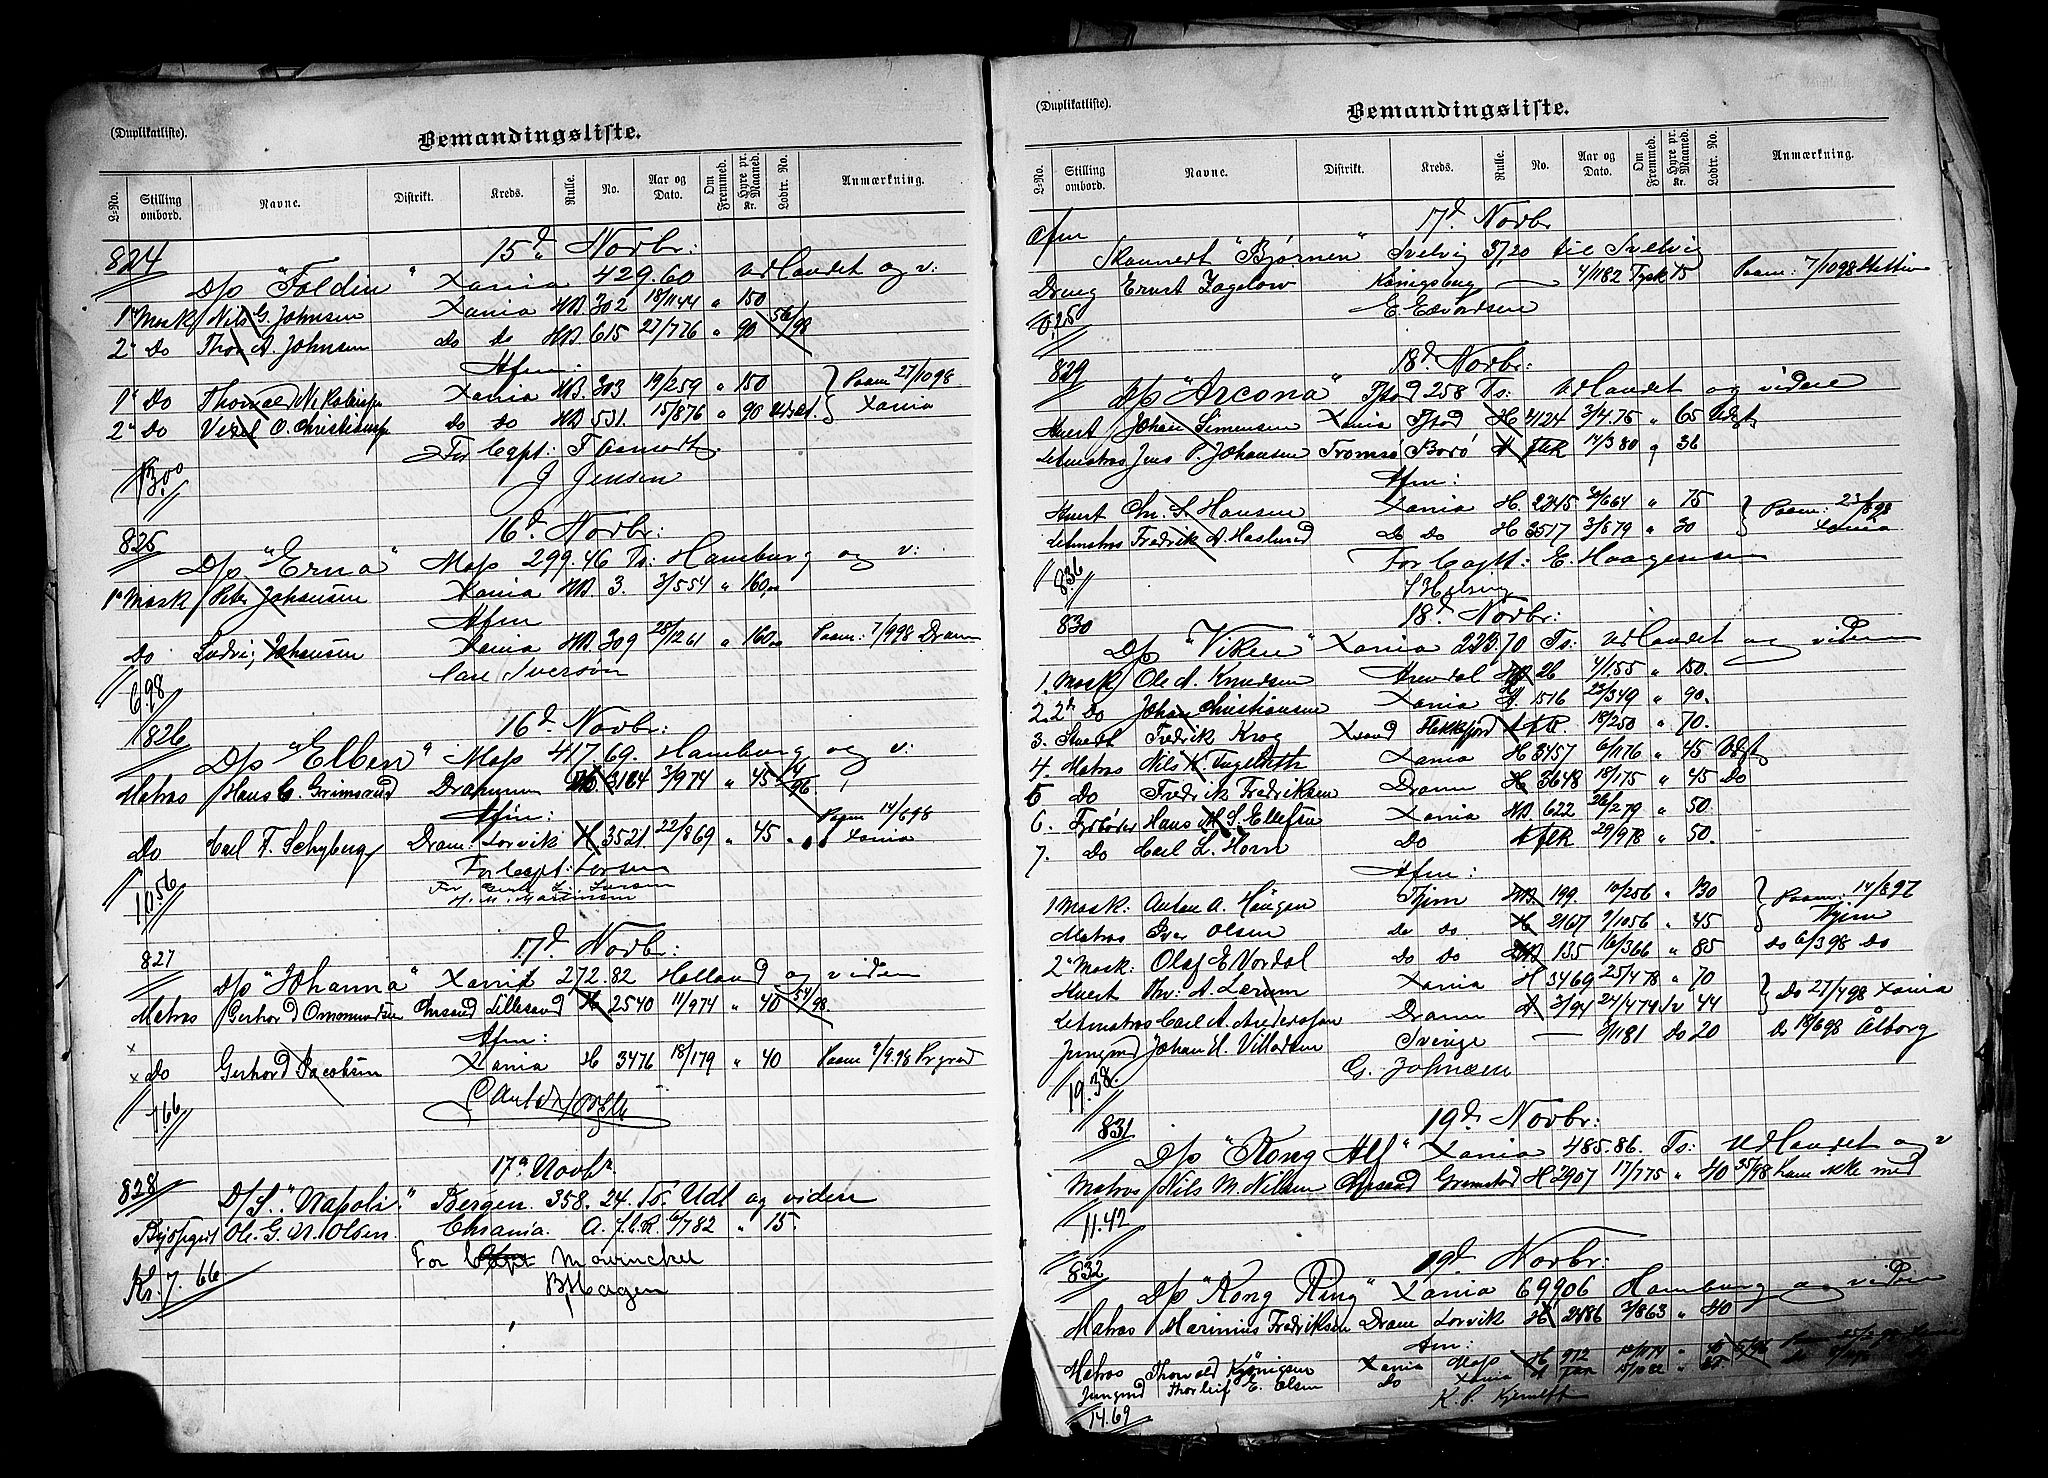 (Duplikatliste).
Bemandingsliste.
L-No. Stilling ombord. Navne. Distrikt. Kreds. Rulle. No. Aar og Dato. Om Fremmed. Hyre pr. Maaned. Kr. Lodtr. No. Anmærkning.
824 15d Novbr:
D/s "Foldin" Xania 429.60 Udlandet og v:
1ste Mask Nils G. Johnsen Xania MB. 302 18/11 44 " 150
2n Do Thor A. Johnsen do do MB. 615 27/7 76 " 90 56/98
Afm:
1ste Do Xania MB. 303 19/2 59 " 150 Paam 27/10 98
2n Do O. Christiansen do do MB 531. 15/8 76 " 90 Xania
For Capt: F Aamodt
13.00 J Jensen
825 16d Novbr:
D/s "Erna" Moss 299.46 Ts: Hamburg og v:
1ste Mask Peter Johansen Xania MB. 3. 3/5 54 " 160,00
Afm
Do Ludvig Johansen Xania MB 309 28/12 61 " 160.00 Paam: 7/9 98 Dram
Carl Iversøn
6.98
826 16d Novbr:
D/s "Elben" Moss 417.69. Hamburg og v:
Matros Hans C. Grimsrud Drammen 3164 3/9 74 " 45
Afm: Paam 14/6 98
Do Carl F. Schyberg Dram. Lorvik H 3521. 22/8 69 " 45 " Xania
For Capt: Larsen
10.56 H. M. Martinsen
827 17d Novbr:
D/s "Johanna" Xania 272.82 Holland og viden
Matros Gerhard Omundsen Chrsand Lillesand H 2540 11/9 74 " 40 54/98.
Afm:
Do Gerhard Jacobsen Xania H 3476 18/1 79 " 40 Paam 9/9.98
7.66
828 17d Novbr.
D/S. "Napoli." Bergen. 358. 24. To. Udl og viden
Ole. G. N. Olsen. Chrania. A. f.l.R. 6/7 82 " 15.
For Capt Mowinckel
Kr. 7. 66. B Hagen
(Duplikatliste).
Bemandingsliste.
L-No. Stilling ombord. Navne. Distrikt. Kreds. Rulle. No. Aar og Dato. Om Fremmed. Hyre pr. Maaned. Kr. Lodtr. No. Anmærkning.
Afm 17d Novbr
Skonnert "Bjørnen" Svelvig 37,20 til Svelvig
Dreng Ernst Jagelow Königsberg — 4/11 82 Tysk 15 Paam: 7/10 98 Stettin
0,25 E. Edvardsen
829 18d Novbr:
D/s "Arcona" Fstad 258 Ts: Udlandet og videre
Stuert Johan Simensen Xania Fstad H 4124 3/4.75 " 65 Udgt
Letmatros Jens P. Johansen Tromsø Borø A flR 14/3 80 " 36
Afm:
Stuert Chr. S. Hansen Xania H. 2245 30/6 64 " 75 Paam: 23/8 98
Letmatros Fredrik A Haslund do do H 3517 3/8 79 " 30 Xania
For Capt: E. Haagensen
8.36
830 18d Novbr:
D/s "Viken" Xania 223.70 Ts: Udlandet og viden
1. Mask Ole A. Knudsen Arendal MB 26 4/1 55 " 150.
2. 2n Do Johan Christiansen Xania A 1516 23/3 49 " 90.
3. Stuert Fredrik Krog Xsand Flekkefjord 18/2 50 " 70.
4. Matros Nils K. Xania H 3457 6/1 76 " 45 Udgt
5 Do Fredrik Fredriksen Dram H 3648 18/1 75 " 45 Do
6. Fyrbøder Hans S. Ellefsen Xania MB 622 26/2 79 " 50.
7. Do Carl L. Horn Do A flR 29/9 78 " 50.
Afm:
1 Mask: Anton A. Haugen Tjøm MB. 199. 10/2 56 " 130 Paam: 14/8 97
Matros Iver Olsen do do. H 2167 9/10 56 " 45 Tjøm
2n Mask: Olaf E Vordal do do MB 135 16/3 66 " 85 Do 6/3 98 do
Stuert A. Larsen Xania H 3469 25/4 78 " 70 Do 27/4 98 Xania
Letmatros Carl A. Andersen Dram A 3/94 24/4 79 Sv 44
Jungmd Johan H. Villadsen Sverige — 9/11 81 do 20 Do 18/6 98 Ålborg
G. Johnsen
19.38.
831 19d Novbr:
D/s "Kong Alf" Xania 485.86. Ts: Udlandet og v
Matros Nils M. Nilsen Chrsand Grimstad H 2907 17/7 75 " 40 35/98 kom ikke med
11.42
832 19d Novbr:
D/s "Kong Ring" Xania 699.06 Hamburg og viden
Matros Marinius Fredriksen Dram Lorvik H 2486 3/8 63 " 40
Afm:
Matros Thorvald Kjønigsen Xania Moss H 972
Jungmd Thorleif E. Olsen do Xania
14.69